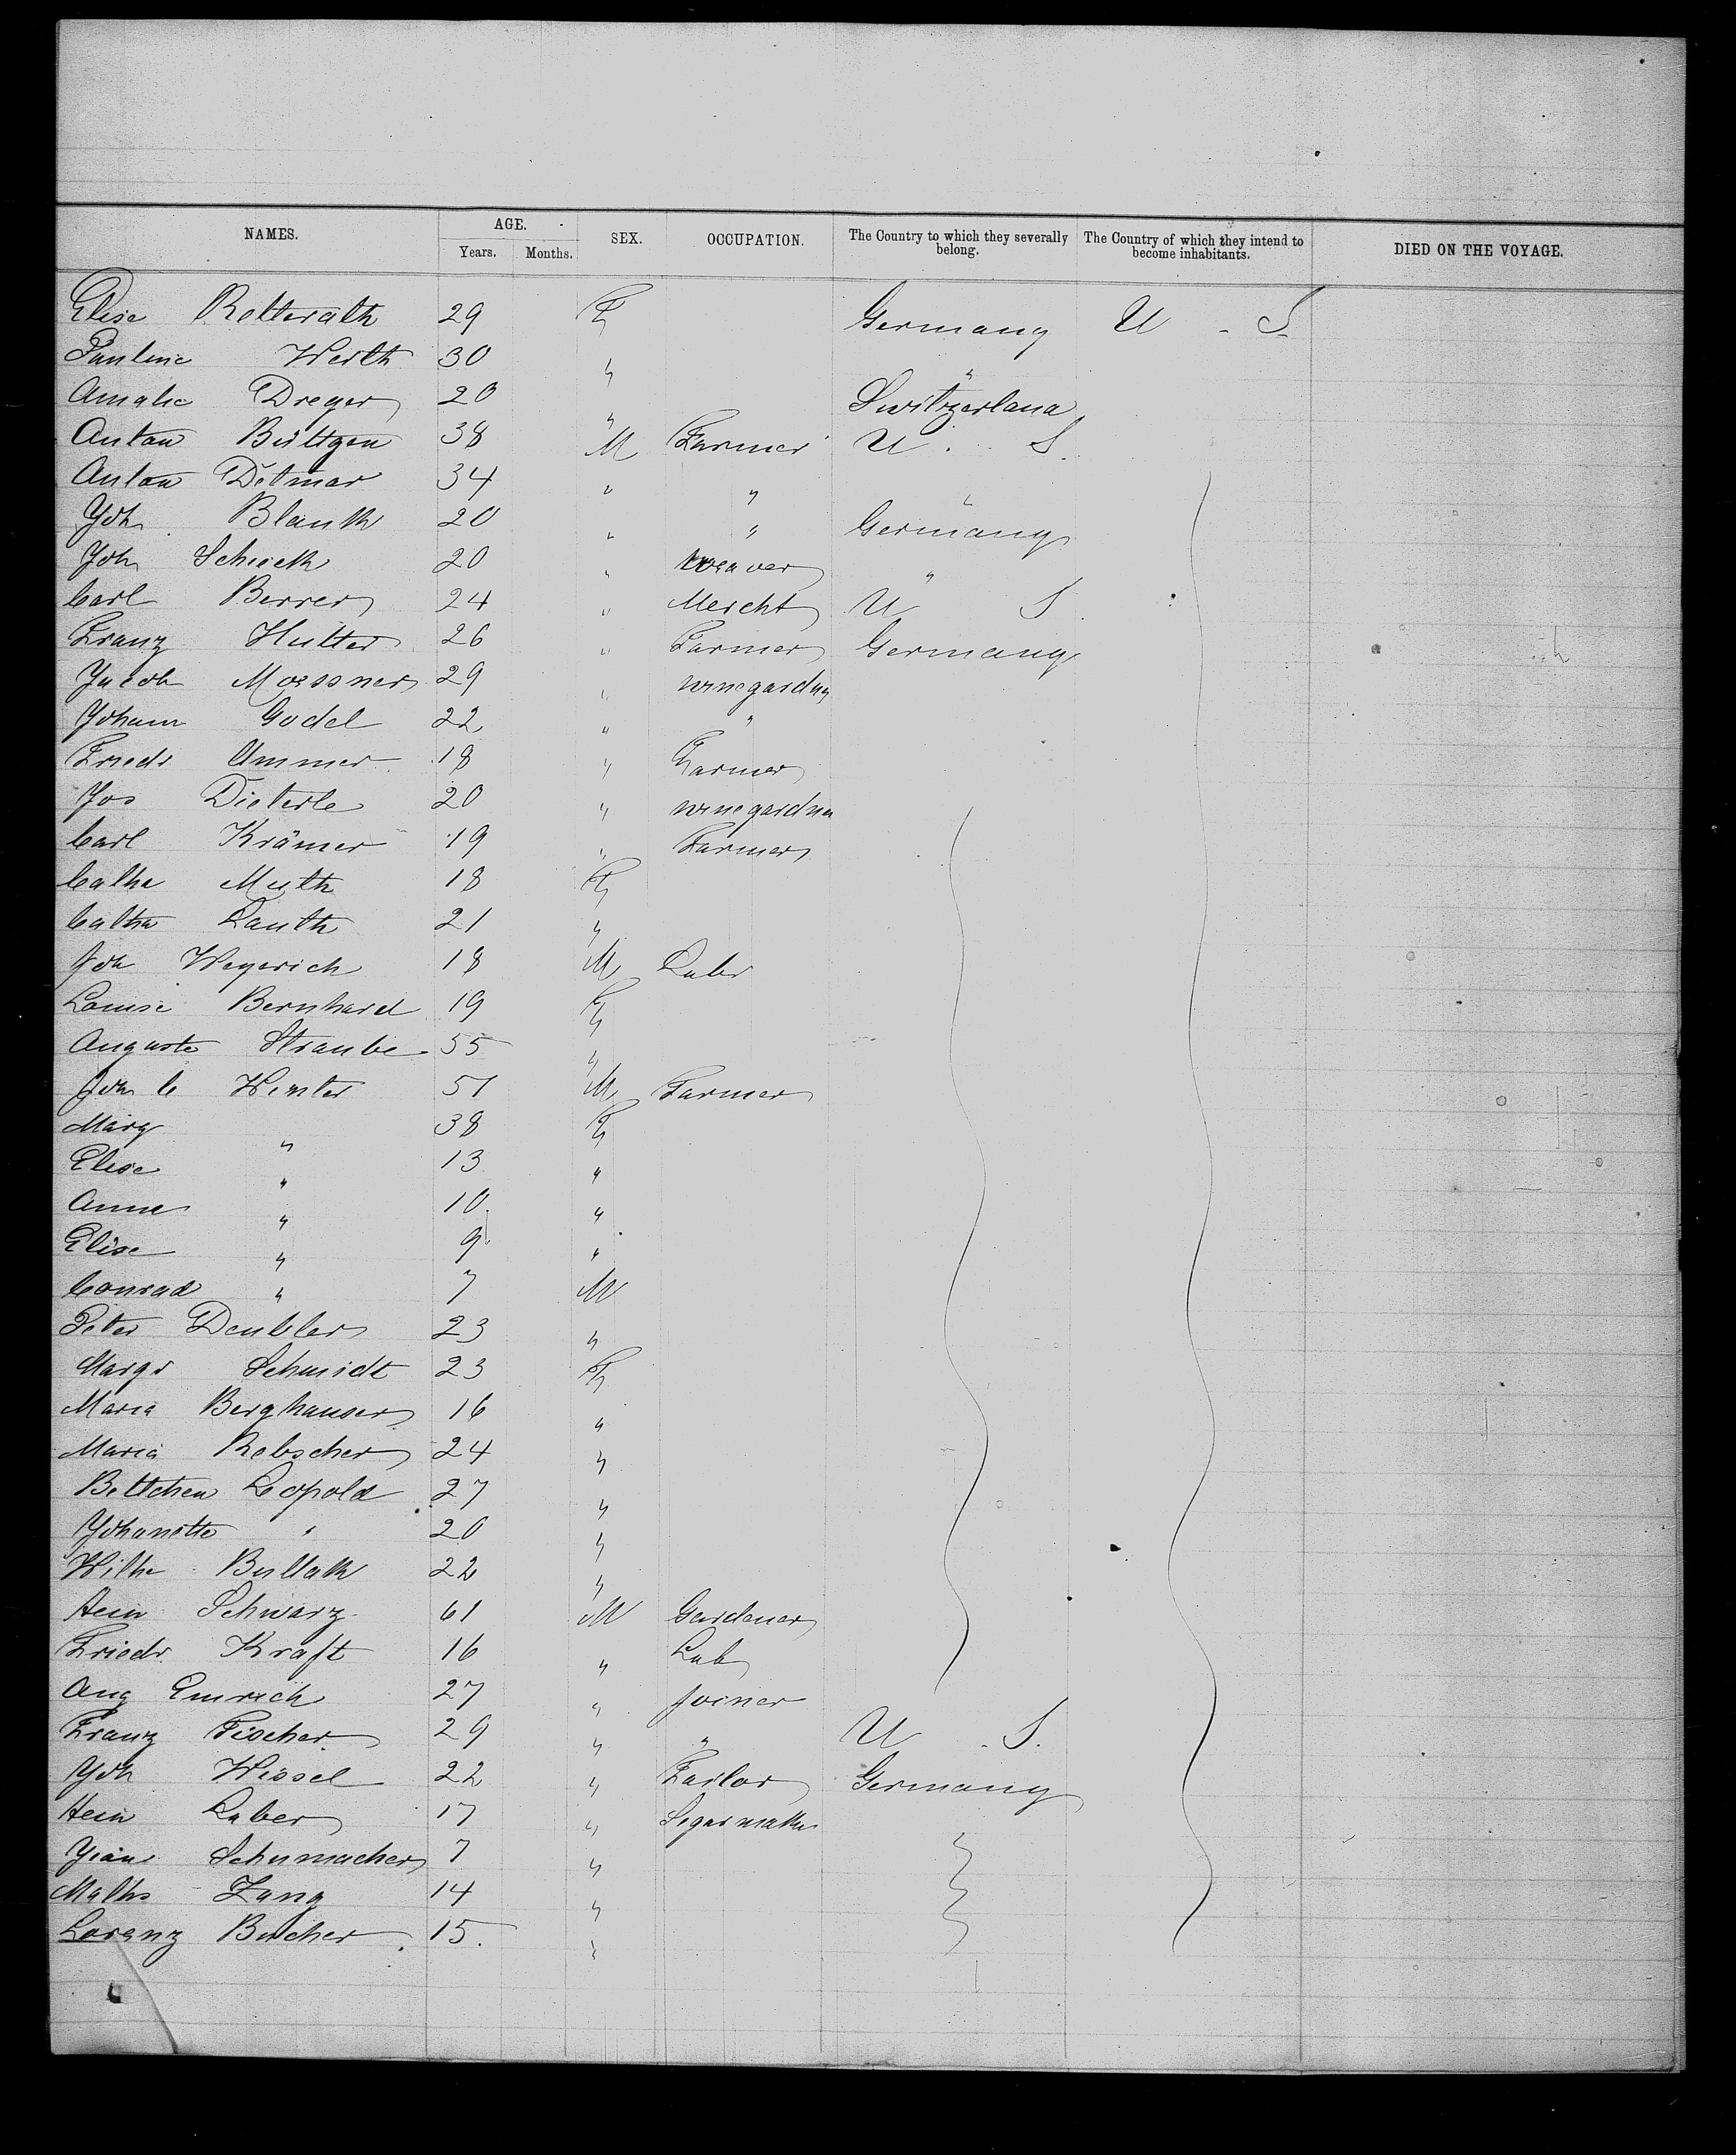 NAMES. AGE. Years. Months. SEX. OCCUPATION. The Country to which they severally belong. The Country of which they intend to become inhabitants. DIED ON THE VOYAGE.
Elise Retterath 29 F Germany U - S
Pauline Werth 30 " "
Amalie Dreger 20 " Switzerland
Anton Bültgen 38 M Farmer U. S.
Anton Detmar 34 " " "
Joh Blank 20 " " Germany
Joh Schieck 20 " Weaver "
Carl Berrer 24 " Mercht U S.
Franz Hutter 26 " Farmer Germany
Jacob Moessner 29 " winegardnr
Johann Godel 22 " "
Friedr Ammer 18 " Farmer
Jos Dieterle 20 " winegardnr
Carl Krämer 19 " Farmer
Catha Muth 18 F
Catha Lauth 21 "
Joh Weyerich 18 M Labr
Louise Bernhard 19 F
Auguste Straube 55 "
Joh C Winter 51 M Farmer
Marg " 38 F
Elise " 13 "
Anna " 10 "
Elise " 9 "
Conrad " 7 M
Peter Deubler 23 "
Margr Schmidt 23 F
Maria Berghauser 16 "
Maria Rebscher 24 "
Bettchen Leopold 27 "
Johanette " 20 "
Wilhe 22 "
Hein Schwarz 61 M Gardener
Friedr Kraft 16 " Lab
Aug Emrich 27 " Joiner
Franz Fischer 29 " " U. S.
Joh Wissel 22 " Tailor Germany
Hein Laber 17 " Segarmaker
Schumacher 7 "
Maths Zang 14 "
Lorenz Bucher 15 "